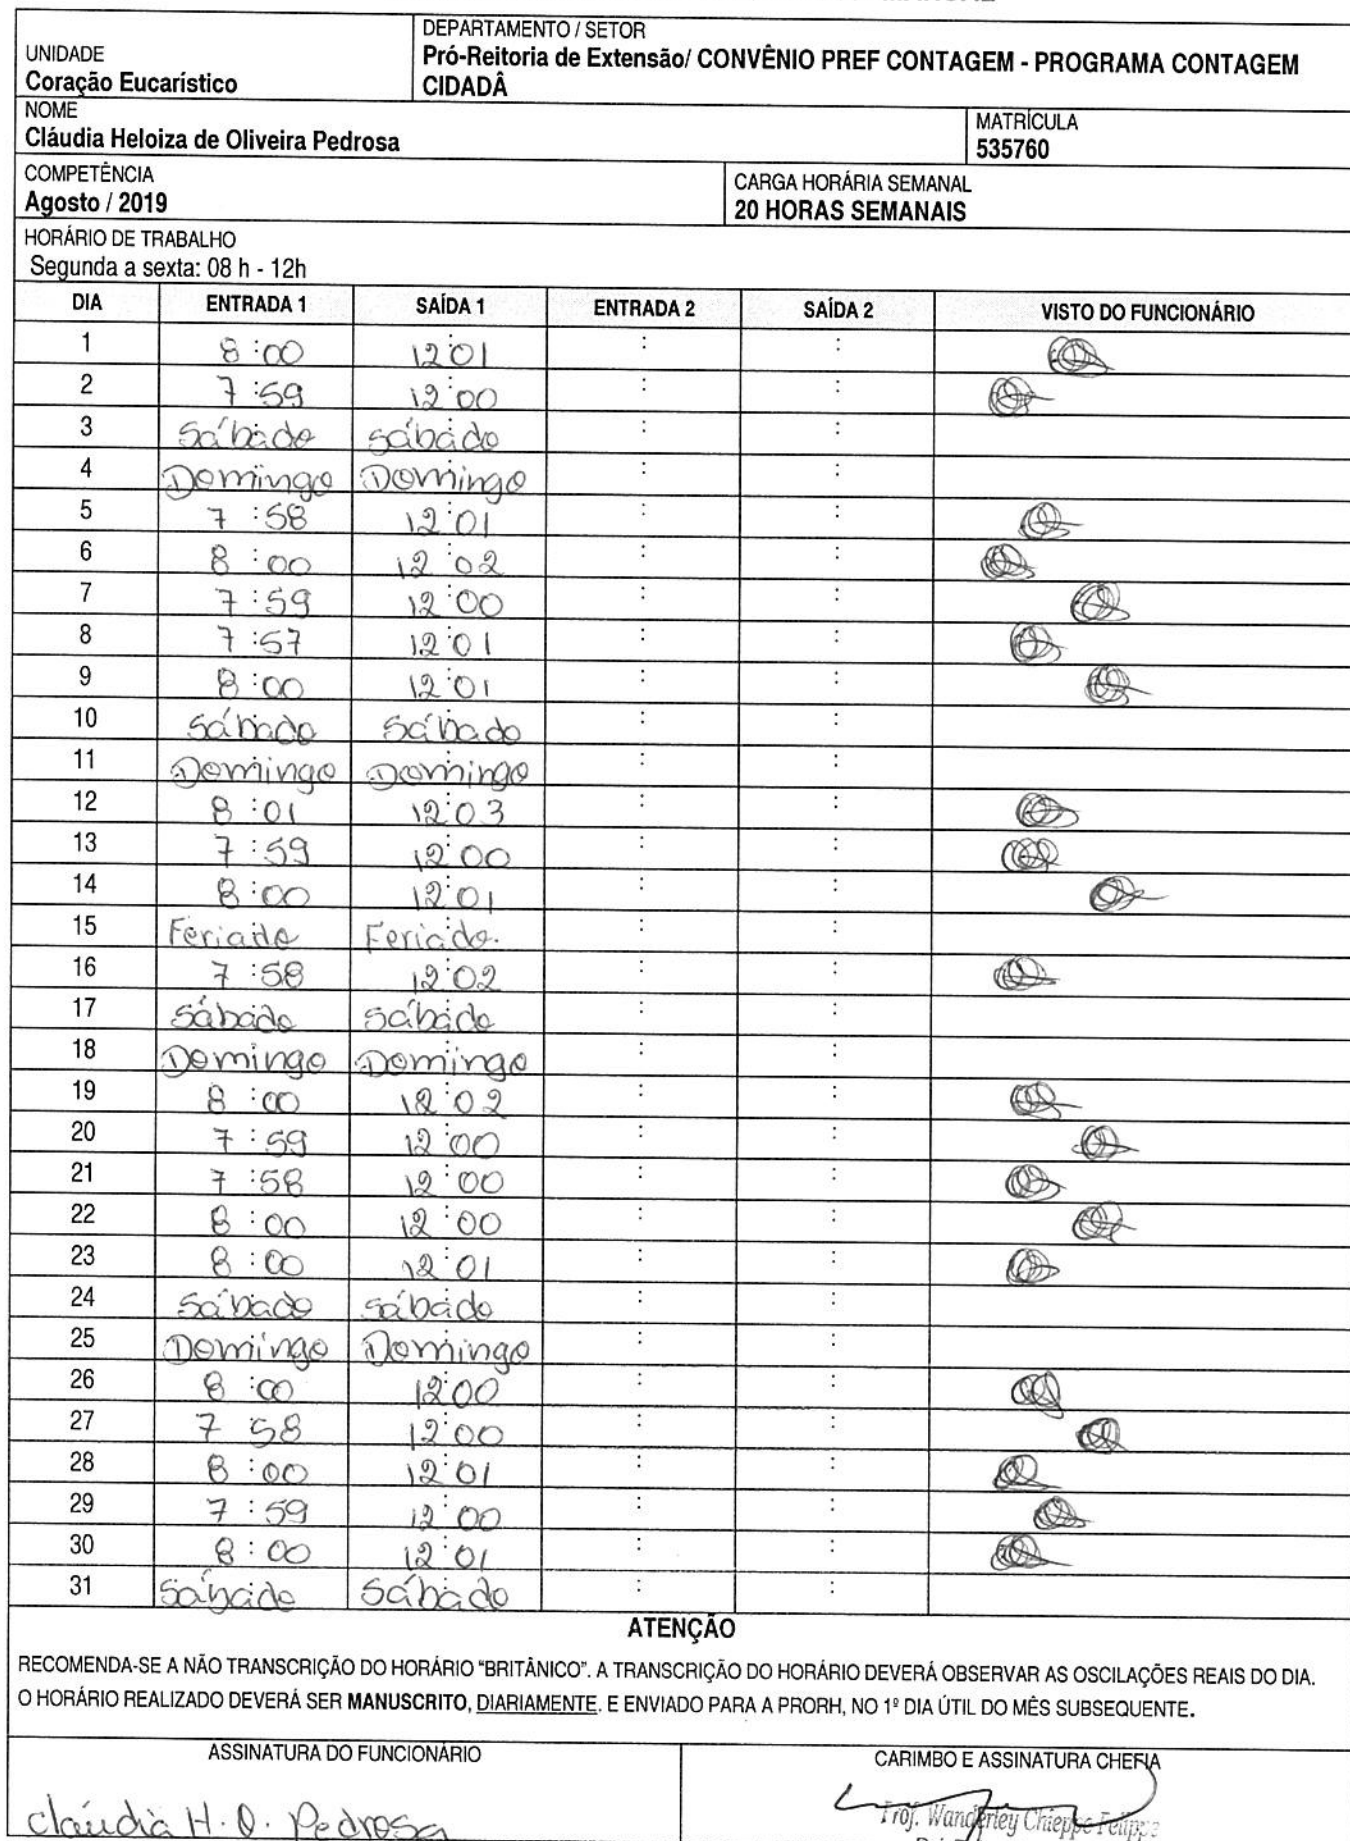 UNIDADE
Coração Eucarístico
DEPARTAMENTO / SETOR
Pró-Reitoria de Extensão/ CONVÊNIO PREF CONTAGEM - PROGRAMA CONTAGEM
CIDADÂ
NOME
Cláudia Heloiza de Oliveira Pedrosa
MATRÍCULA
535760
COMPETÊNCIA
Agosto / 2019
CARGA HORÁRIA SEMANAL
20 HORAS SEMANAIS
HORÁRIO DE TRABALHO
Segunda a sexta: 08 h - 12h
DIA ENTRADA 1 SAÍDA 1 ENTRADA 2 SAÍDA 2 VISTO DO FUNCIONÁRIO
1 8:00 12:01 : :
2 7:59 12:00 : :
3 Sábado Sábado : :
4 Domingo Domingo : :
5 7:58 12:01 : :
6 8:00 12:02 : :
7 7:59 12:00 : :
8 7:57 12:01 : :
9 8:00 12:01 : :
10 Sábado Sábado : :
11 Domingo Domingo : :
12 8:01 12:03 : :
13 7:59 12:00 : :
14 8:00 12:01 : :
15 Feriado Feriado. : :
16 7:58 12:02 : :
17 Sábado Sábado : :
18 Domingo Domingo : :
19 8:00 12:02 : :
20 7:59 12:00 : :
21 7:58 12:00 : :
22 8:00 12:00 : :
23 8:00 12:01 : :
24 Sábado Sábado : :
25 Domingo Domingo : :
26 8:00 12:00 : :
27 7:58 12:00 : :
28 8:00 12:01 : :
29 7:59 12:00 : :
30 8:00 12:01 : :
31 Sábado Sábado : :
ATENÇÃO
RECOMENDA-SE A NÃO TRANSCRIÇÃO DO HORÁRIO "BRITÂNICO". A TRANSCRIÇÃO DO HORÁRIO DEVERÁ OBSERVAR AS OSCILAÇÕES REAIS DO DIA.
O HORÁRIO REALIZADO DEVERÁ SER MANUSCRITO, DIARIAMENTE. E ENVIADO PARA A PRORH, NO 1º DIA ÚTIL DO MÊS SUBSEQUENTE.
ASSINATURA DO FUNCIONÁRIO
Cláudia H. O. Pedrosa
CARIMBO E ASSINATURA CHEFIA
Prof. Wanderley Chieppe Felippe